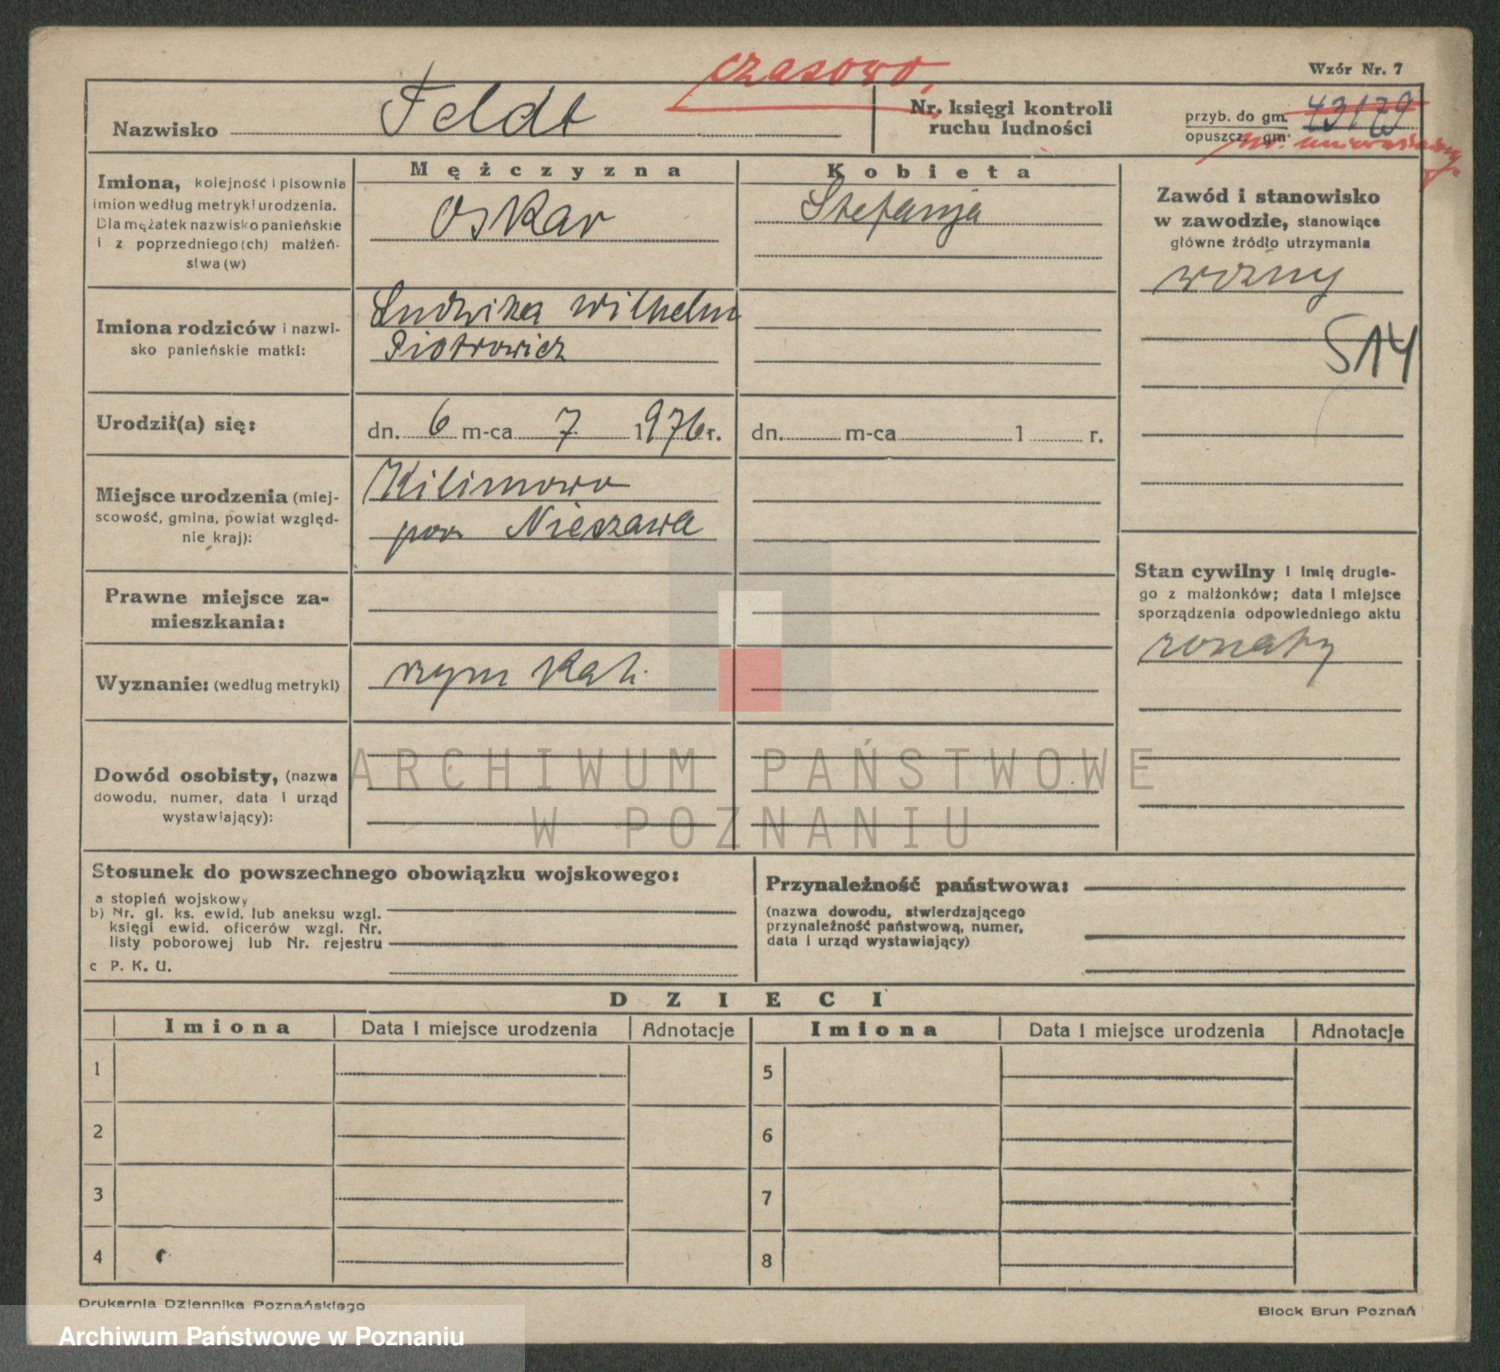 czasowo
Wzór Nr. 7
Nazwisko Feldt
Nr. księgi kontroli
ruchu ludności
przyb. do gm. 43179
opuszcz. gm.
nr. unieważniony
Imiona, kolejność i pisownia
imion według metryki urodzenia.
Dla mężatek nazwisko panieńskie
i z poprzedniego(ch) małżeń-
stwa(w)
Mężczyzna
Oskar
Kobieta
Stefanja
Zawód i stanowisko
w zawodzie, stanowiące
główne źródło utrzymania
woźny
S14
Imiona rodziców i nazwi-
sko panieńskie matki:
Ludwika Wilhelm
Piotrowicz
Urodził(a) się:
dn. 6 m-ca 7 1976 r.
dn. m-ca 1 r.
Miejsce urodzenia (miej-
scowość, gmina, powiat względ-
nie kraj):
Kilimowo
pow Nieszawa
Stan cywilny i imię drugie-
go z małżonków; data i miejsce
sporządzenia odpowiedniego aktu
żonaty
Prawne miejsce za-
mieszkania:
Wyznanie: (według metryki)
rzym kat.
Dowód osobisty, (nazwa
dowodu, numer, data i urząd
wystawiający):
ARCHIWUM PAŃSTWOWE
W POZNANIU
Stosunek do powszechnego obowiązku wojskowego:
a stopień wojskowy
b) Nr. gł. ks. ewid. lub aneksu wzgl.
księgi ewid. oficerów wzgl. Nr.
listy poborowej lub Nr. rejestru
c P. K. U.
Przynależność państwowa:
(nazwa dowodu, stwierdzającego
przynależność państwową, numer,
data i urząd wystawiający)
DZIECI
Imiona Data i miejsce urodzenia Adnotacje Imiona Data i miejsce urodzenia Adnotacje
1 5
2 6
3 7
4 8
Drukarnia Dziennika Poznańskiego
Block Brun Poznań
Archiwum Państwowe w Poznaniu